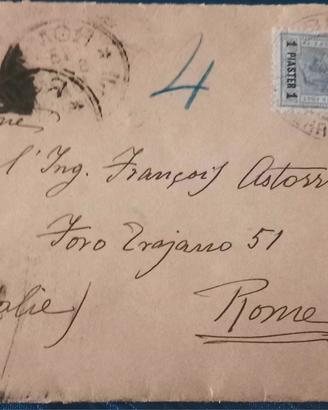 4
1 PIASTER 1
l'Ing. François Astorr
Foro Trajano 51
alie)
Rome